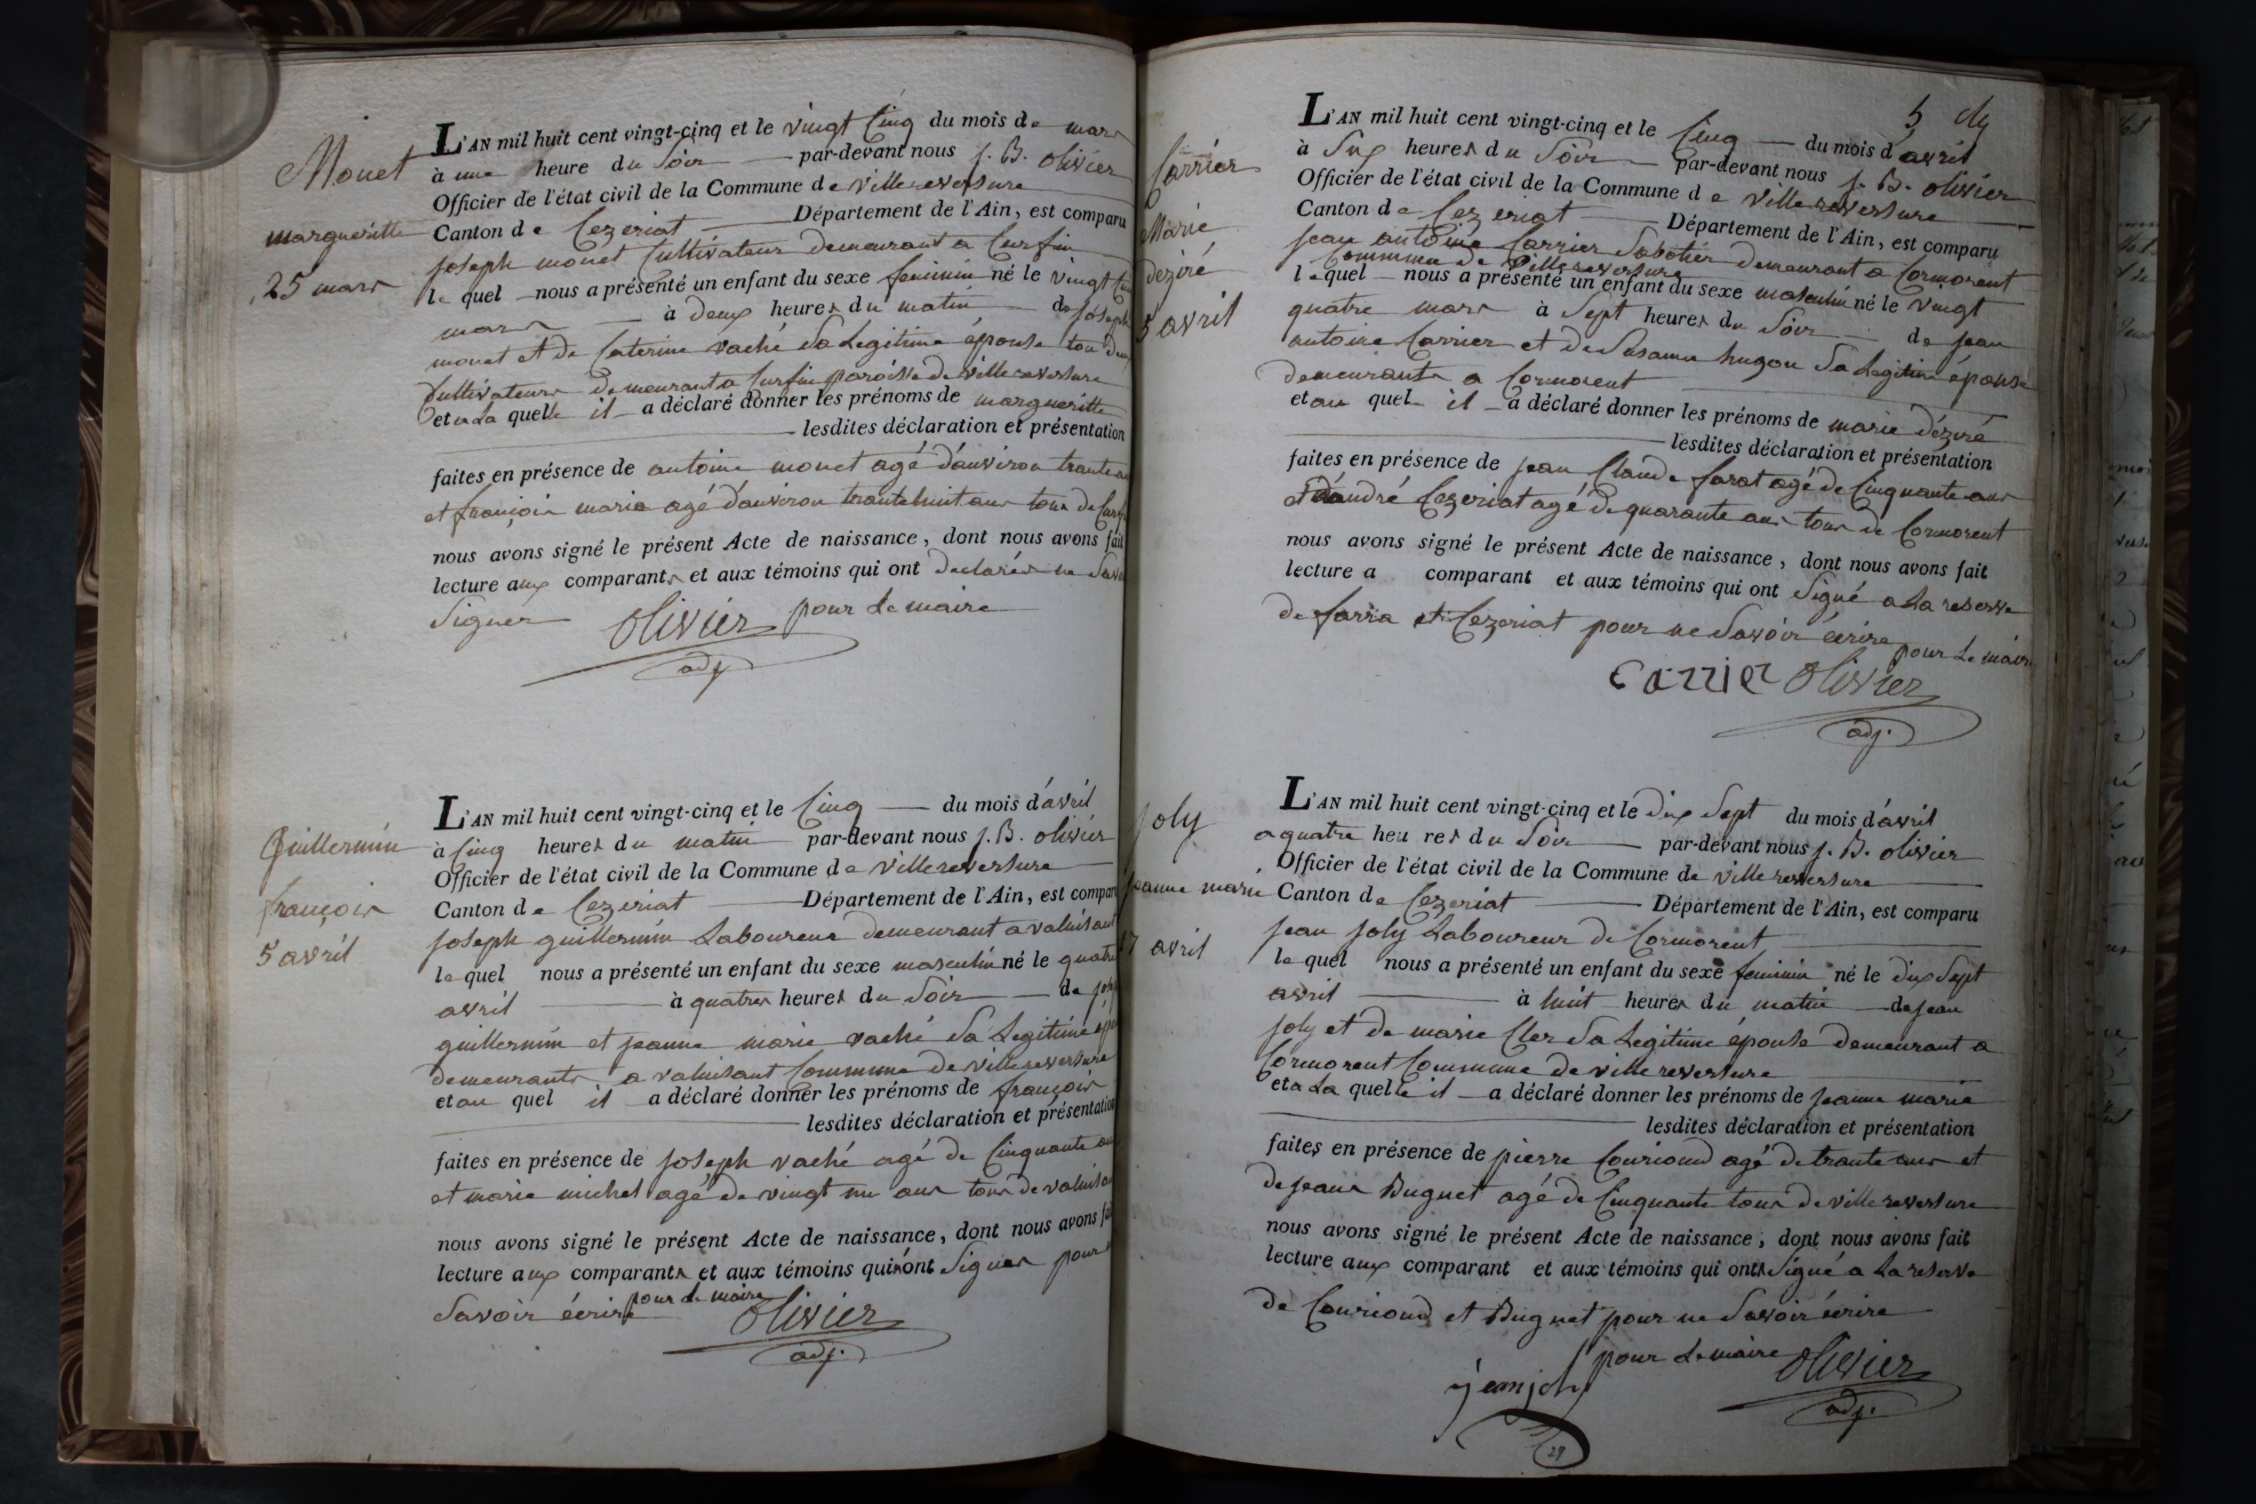 Monet
margueritte
25 mars
L'AN mil huit cent vingt-cinq et le vingt Cinq du mois de mars
à une heure du Soir par-devant nous J. B. olivier
Officier de l'état civil de la Commune de villereversure
Canton de Cezeriat Département de l'Ain, est comparu
joseph monet Cultivateur demeurant a Curfin
le quel nous a présenté un enfant du sexe feminin né le vingt
mars à deux heures du matin de joseph
monet et de Caterine vaché Sa Legitime épouse tou deux
Cultivateurs demeurant a Curfin paroisse de villereversure
et a La quelle il a déclaré donner les prénoms de margueritte
lesdites déclaration et présentation
faites en présence de antoine monet agé d'anviron trante
et françois marie agé d'anviron trante huit ans tous de
nous avons signé le présent Acte de naissance, dont nous avons fait
lecture aux comparants et aux témoins qui ont declarés ne
Signer olivier pour Le maire
adj.
Guillermin
françois
5 avril
L'AN mil huit cent vingt-cinq et le Cinq du mois d'avril
à Cinq heures du matin par-devant nous J. B. olivier
Officier de l'état civil de la Commune de villereversure
Canton de Cezeriat Département de l'Ain, est comparu
joseph guillermin Laboureur demeurant a valuisant
le quel nous a présenté un enfant du sexe masculin né le quatre
avril à quatres heures du Soir de
guillermin et jeanne marie vaché Sa Legitime
demeurants a valuisant Commune de villereversure
et au quel il a déclaré donner les prénoms de françois
lesdites déclaration et présentation
faites en présence de joseph vaché agé de Cinquante
et marie michel agé de vingt un ans tous de
nous avons signé le présent Acte de naissance, dont nous avons
lecture aux comparants et aux témoins qui ont Signer pour
Savoir écrire pour Le maire olivier
adj.
5
Carrier
Marie
deziré
5 avril
L'AN mil huit cent vingt-cinq et le Cinq du mois d'avril
à Six heures du Soir par-devant nous J. B. olivier
Officier de l'état civil de la Commune de villereversure
Canton de Cezeriat Département de l'Ain, est comparu
jean antoine Carrier Sabotier demeurant a Cormorent
Commune de villereversure
le quel nous a présenté un enfant du sexe masculin né le vingt
quatre mars à Sept heures du Soir de jean
antoine Carrier et de Susanne hugon Sa Legitime épouse
demeurants a Cormorent
et au quel il a déclaré donner les prénoms de marie déziré
lesdites déclaration et présentation
faites en présence de jean Claude farat agé de Cinquante ans
andré Cezeriat agé de quarante ans tous de Cormorent
nous avons signé le présent Acte de naissance, dont nous avons fait
lecture a comparant et aux témoins qui ont Signé a La reserve
de farra et Cezeriat pour ne Savoir écrire pour Le maire
Carrier olivier
adj.
joly
jeanne marie
17 avril
L'AN mil huit cent vingt-cinq et le dix Sept du mois d'avril
a quatre heures du Soir par-devant nous J. B. olivier
Officier de l'état civil de la Commune de villereversure
Canton de Cezeriat Département de l'Ain, est comparu
jean joly Laboureur de Cormorent
le quel nous a présenté un enfant du sexe feminin né le dix Sept
avril à huit heures du matin de jean
joly et de marie Cler Sa Legitime épouse demeurant a
Cormorent Commune de villereversure
et a La quelle il a déclaré donner les prénoms de jeanne marie
lesdites déclaration et présentation
faites en présence de pierre Courioud agé de trante ans et
de jeans Buguet agé de Cinquante tous de villereversure
nous avons signé le présent Acte de naissance, dont nous avons fait
lecture aux comparant et aux témoins qui ont Signé a La reserve
de Courioud et Buguet pour ne Savoir écrire
pour Le maire olivier
jean joly
adj.